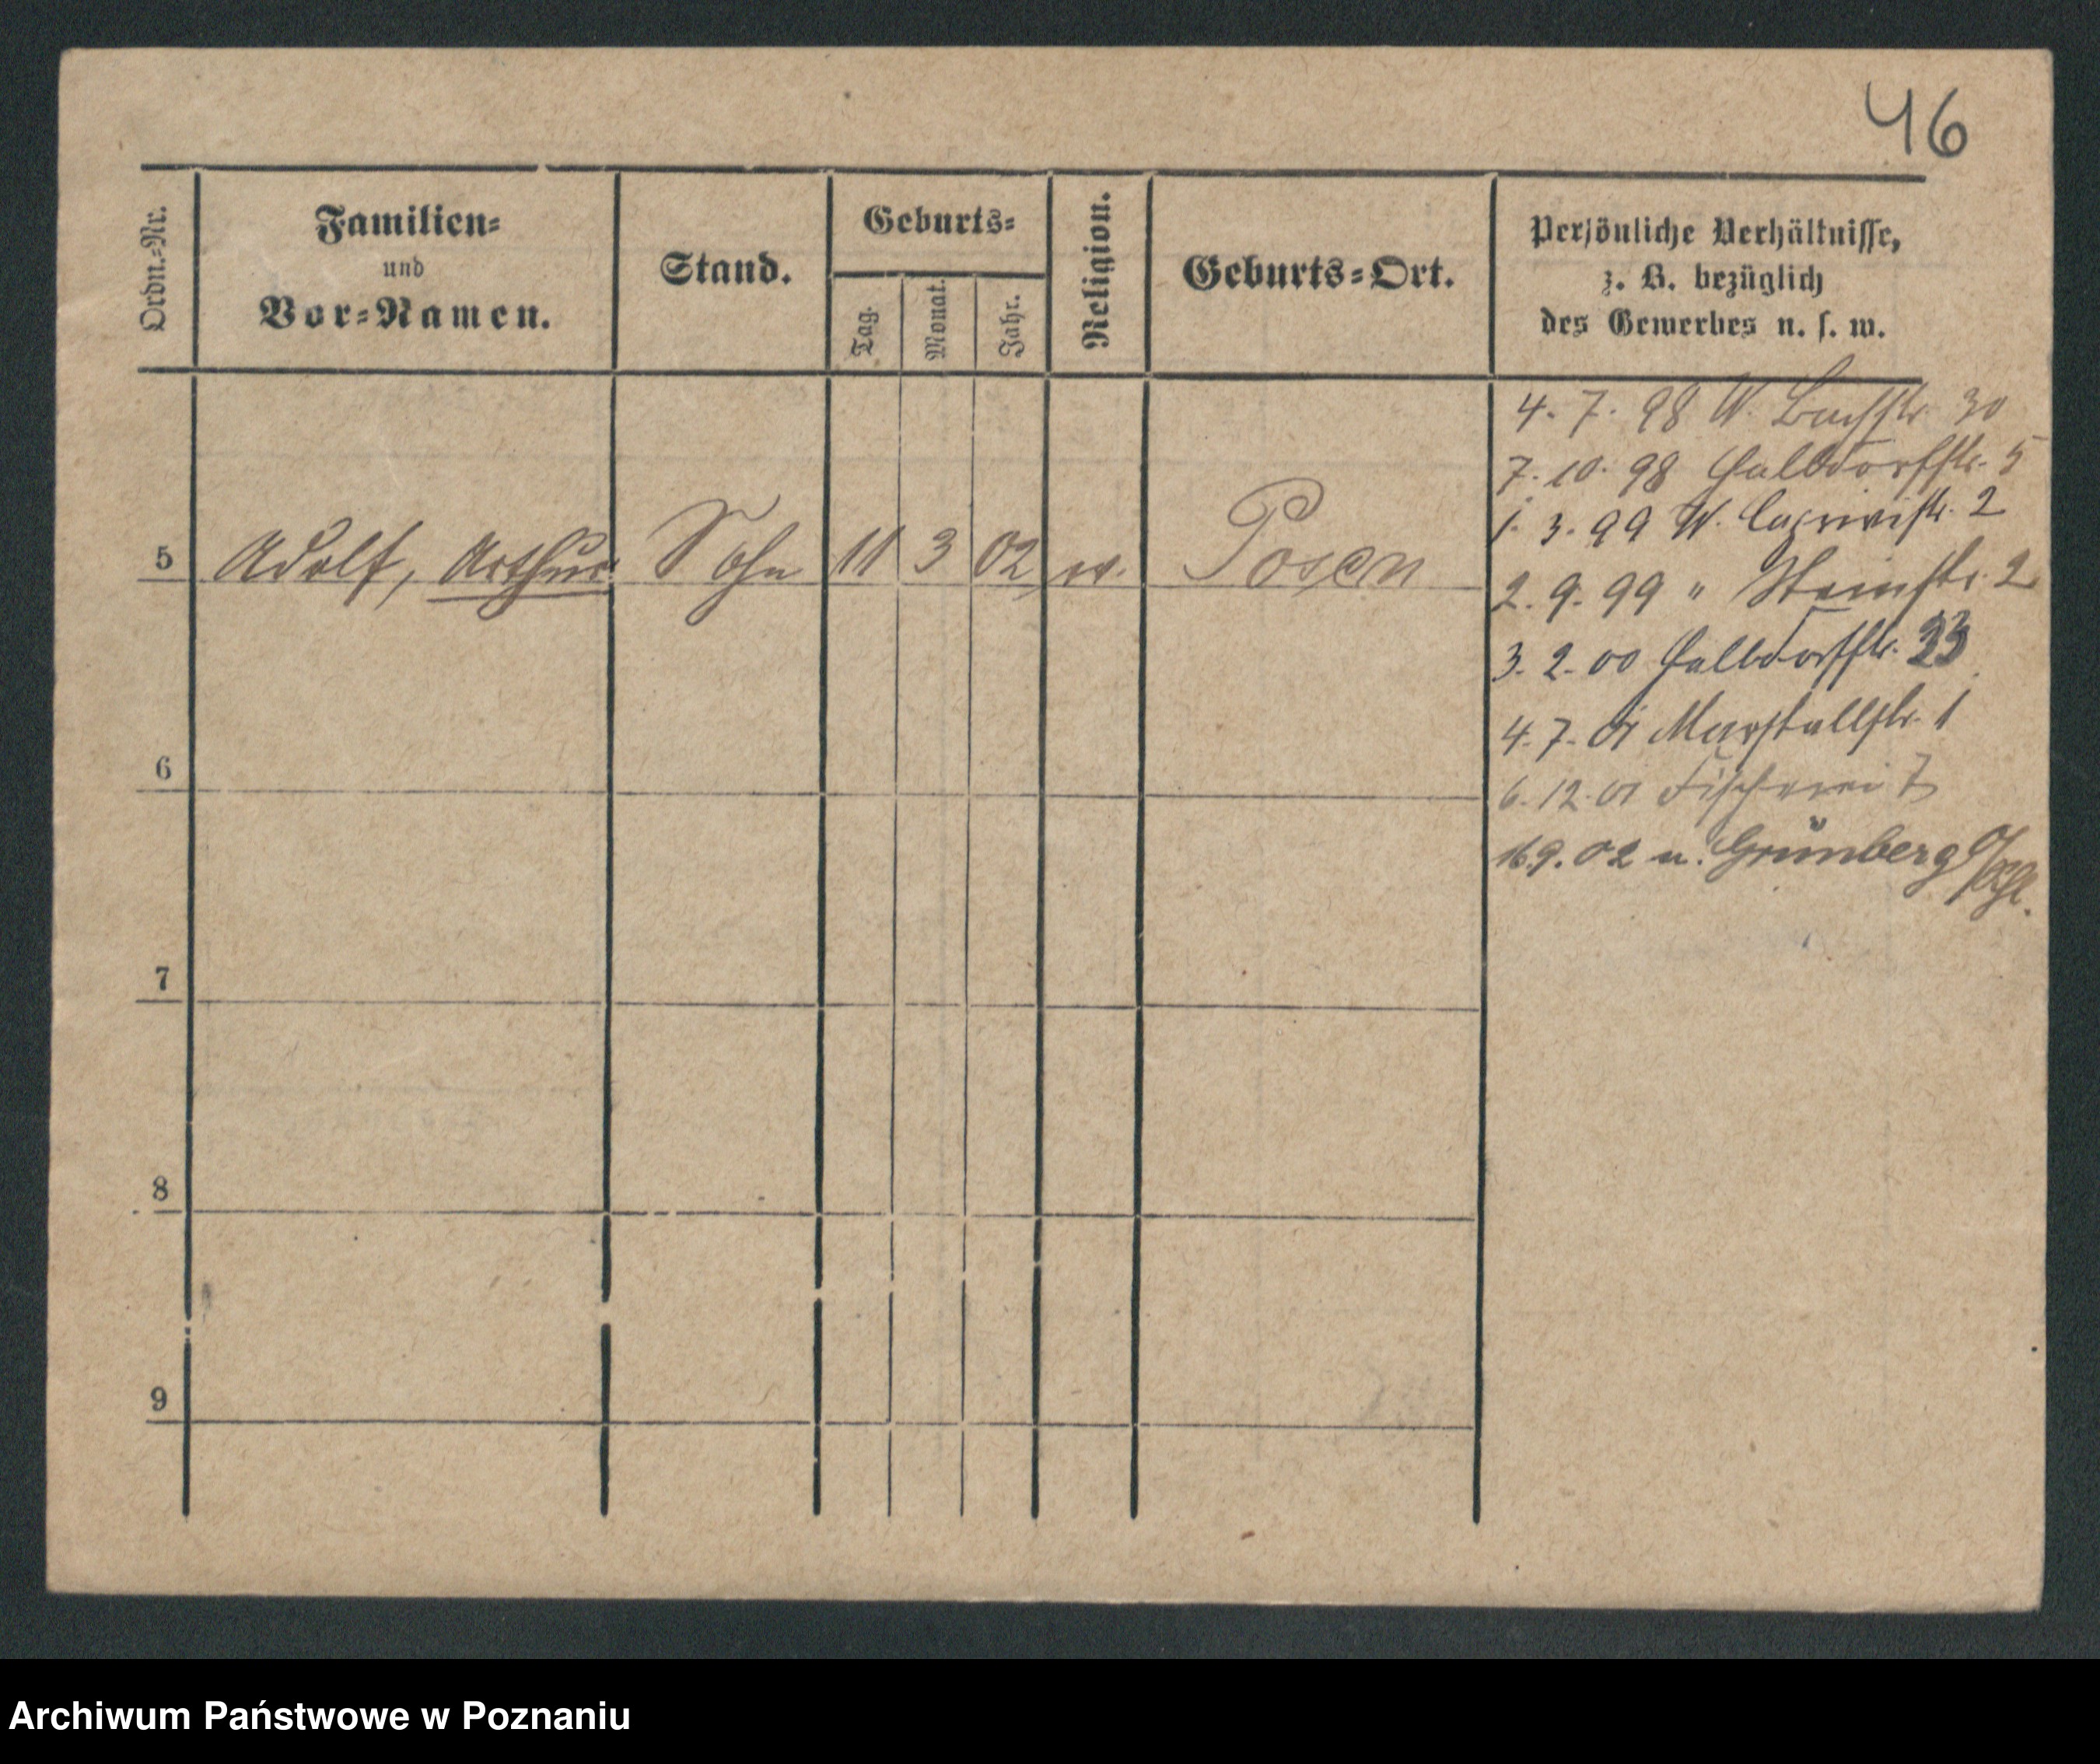 46
Ordn.-Nr.
Familien-
und
Vor-Namen.
Stand.
Geburts-
Tag.
Monat.
Jahr.
Religion.
Geburts-Ort.
Persönliche Verhältnisse,
z. B. bezüglich
des Gewerbes u. s. w.
5 Adolf, Arthur Sohn 11 3 02 w. Posen
4. 7. 98 W. Bachstr. 30
7. 10. 98 Halbdorfstr. 5
1. 3. 99 W. Caprivistr. 2
2. 9. 99 " Steinstr. 2
3. 2. 00 Halbdorfstr. 33
4. 7. 01 Marstallstr. 1
6. 12. 01 Fischerei 7
16.9.02 n. Grünberg O/Schl.
6
7
8
9
Archiwum Państwowe w Poznaniu